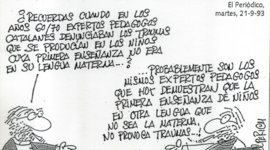 El Periódico,
martes, 21-9-93
¿RECUERDAS CUANDO EN LOS
AÑOS 60/70 EXPERTOS PEDAGOGOS
CATALANES DENUNCIABAN LOS TRAUMAS
QUE SE PRODUCÍAN EN LOS NIÑOS
CUYA PRIMERA ENSEÑANZA NO ERA
EN SU LENGUA MATERNA...?
PROBABLEMENTE SON LOS
MISMOS EXPERTOS PEDAGOGOS
QUE HOY DEMUESTRAN QUE LA
PRIMERA ENSEÑANZA DE NIÑOS
EN OTRA LENGUA QUE
NO SEA LA MATERNA,
NO PROVOCA TRAUMAS...!